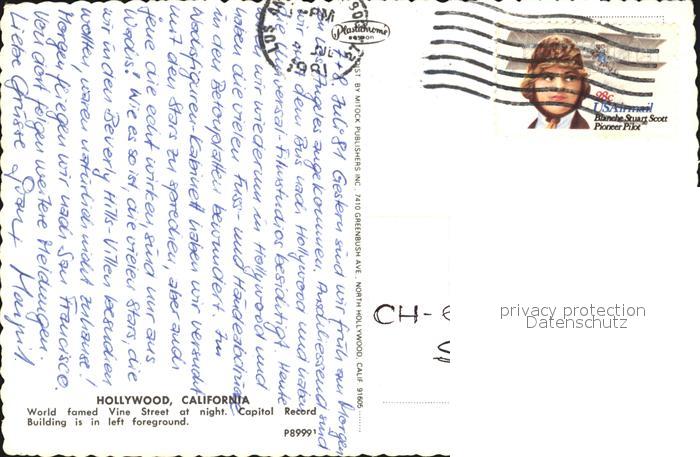 28. Juli 81 Gestern sind wir früh am Morgen
in Los Angeles angekommen. Anschliessend sind
wir mit dem Bus nach Hollywood und haben
die Universal-Filmstudios besichtigt. Heute
waren wir wiederum in Hollywood und
haben die vielen Fuss- und Händeabdrücke
in den Betonplatten bewundert. Im
Wachsfiguren Kabinett haben wir versucht
mit den Stars zu sprechen, aber auch
jene die echt wirken, sind nur aus
Wachs! Wie es so ist, die vielen Stars, die
wir in den Beverly Hills-Villen besuchen
wollten, waren natürlich nicht zuhause!
Morgen fliegen wir nach San Francisco.
Von dort folgen weitere Meldungen.
Liebe Grüsse
Margrit
HOLLYWOOD, CALIFORNIA
World famed Vine Street at night. Capitol Record
Building is in left foreground.
P89991
Plastichrome
DIST. BY MITOCK PUBLISHERS INC., 7410 GREENBUSH AVE., NORTH HOLLYWOOD, CALIF. 91605
LOS
PM
1981
28c
USAirmail
Blanche Stuart Scott
Pioneer Pilot
CH-
privacy protection
Datenschutz